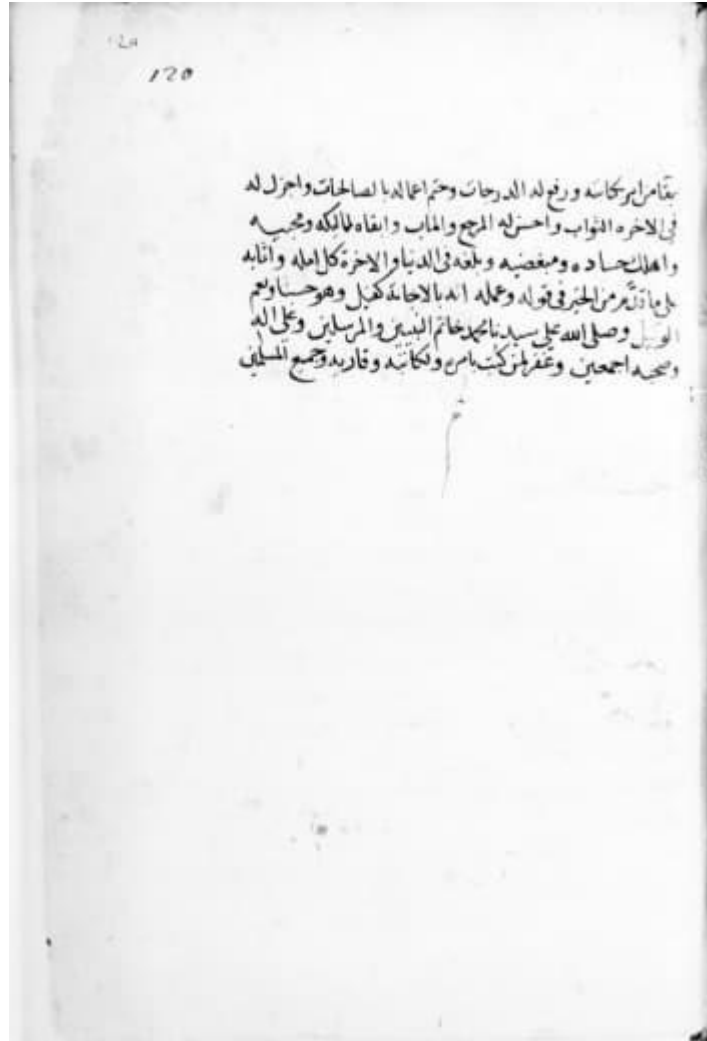 120
ورفع له الدرجات وختم اعماله بالصالحات واجزل له
فى الاخره الثواب واحسن له المرجع والماب وابقاه لمالكه ومحبيه
واهلك حساده ومبغضيه وبلغه فى الدنيا والاخرة كل امله واثابه
على ما قدم من الخير فى قوله وعمله انه بالاجابة كفيل وهو حسبنا ونعم
الوكيل وصلى الله على سيدنا محمد خاتم النبيين والمرسلين وعلى اله
وصحبه اجمعين وغفر لمن كتب بامره ولكاتبه وقاريه وجميع المسلمين